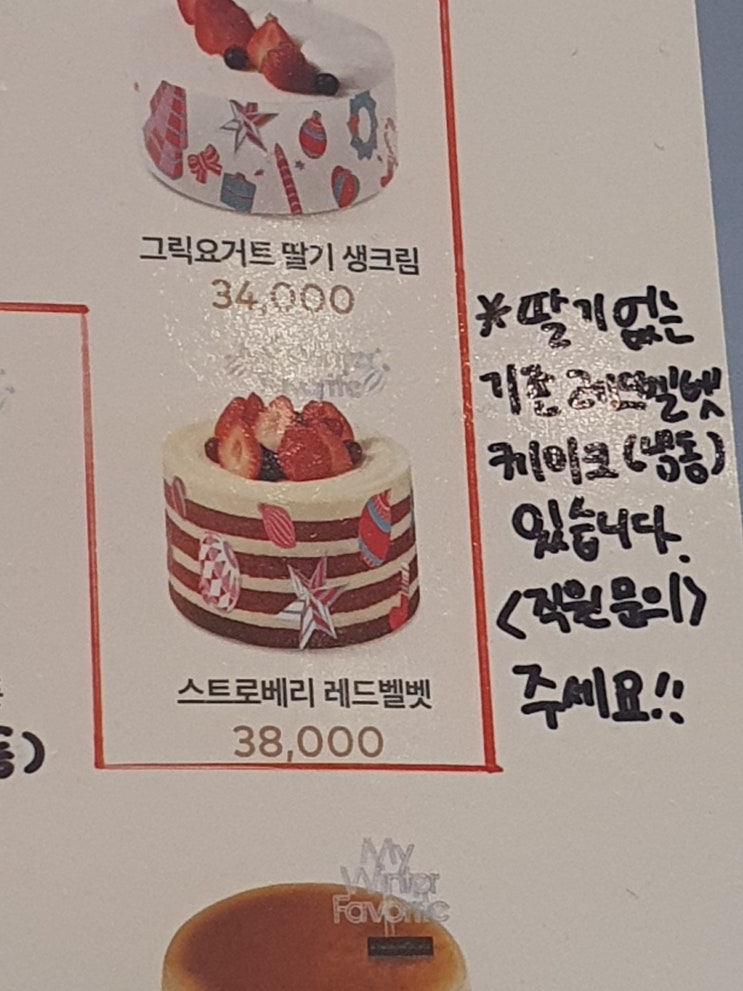 그릭요거트 딸기 생크림
34,000
스트로베리 레드벨벳
38,000
*딸기 없는
기존 레드벨벳
케이크 (냉동)
있습니다.
<직원문의>
주세요!!
동)
My
Winter
Favorite